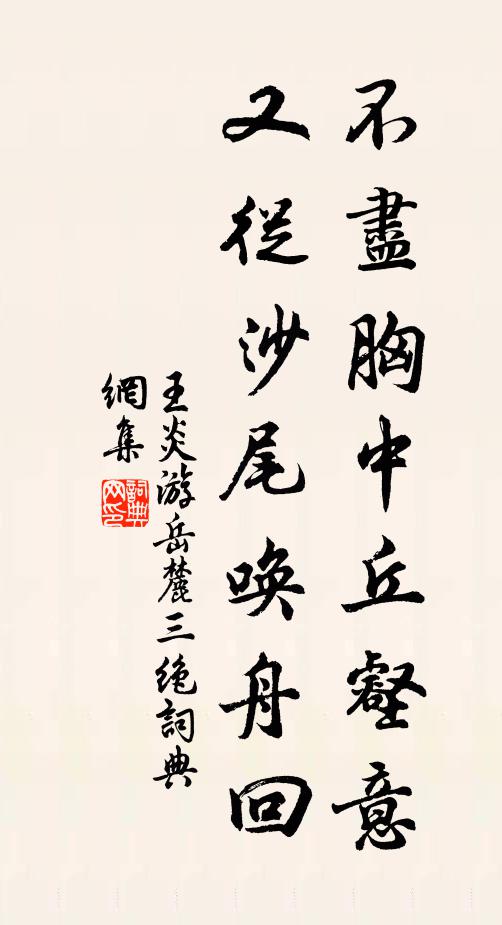 不盡胸中丘壑意
又從沙尾喚舟回
王炎游岳麓三绝詞典
網集
詞典網印